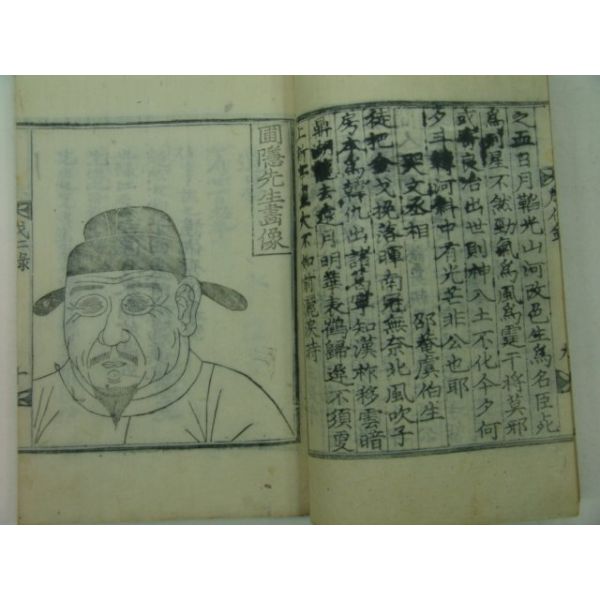 之五日月韜光山河改色生爲名臣死
爲列星不然勁氣爲風爲霆干將莫邪
或寄良冶出世則神入土不化今夕何
夕斗轉河斜中有光芒非公也耶
哭文丞相 邵菴虞伯生
徒把金戈挽落暉南冠無奈北風吹子
房本爲韓仇出諸葛寧知漢祚移雲暗
鼎湖龍去遠月明華表鶴歸遲不須更
上新亭望大不如前灑淚時
圃隱先生畫像